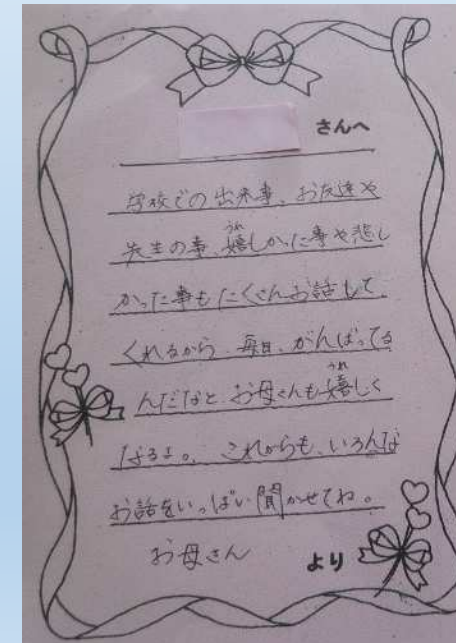 さんへ
学校での出来事、お友達や
先生の事、嬉しかった事や悲し
かった事もたくさんお話して
くれるから、毎日、がんばってる
んだなと、お母さんも嬉しく
なるよ。これからも、いろんな
お話をいっぱい聞かせてね。
お母さん より